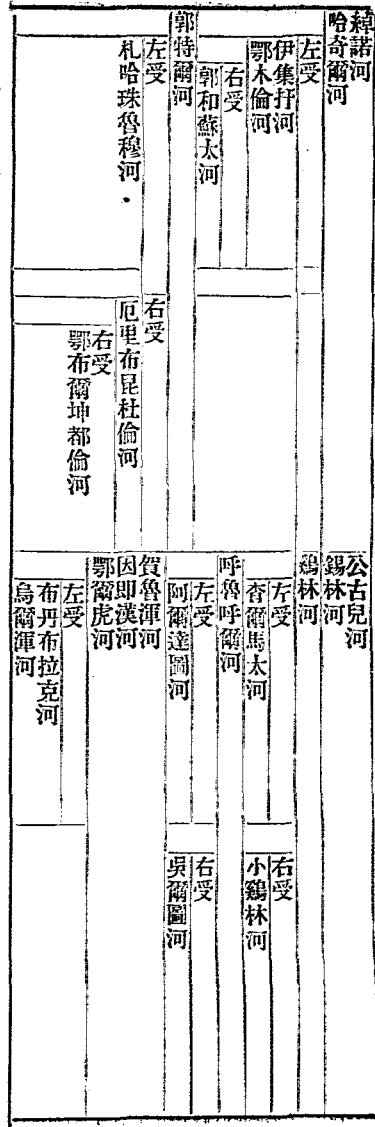 綽諾河
哈奇爾河
左受
伊集扞河
鄂木倫河
右受
郭和蘇太河
郭特爾河
左受
札哈珠魯穆河
右受
厄里布昆杜倫河
右受
鄂布爾坤都倫河
公古兒河
錫林河
鷄林河
左受
杳爾馬太河
右受
小鷄林河
呼魯呼爾河
左受
阿爾達圖河
右受
吳爾圖河
賀魯渾河
因即漢河
鄂爾虎河
左受
布丹布拉克河
烏爾渾河